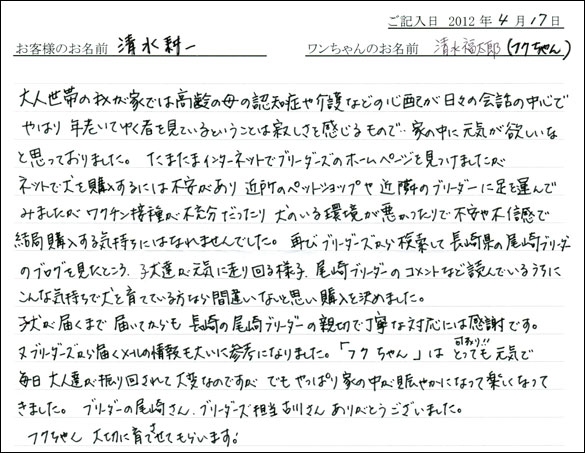 ご記入日 2012年 4月 17日
お客様のお名前 清水 耕一 ワンちゃんのお名前 清水福太郎 (フクちゃん)
大人世帯の我が家では高齢の母の認知症や介護などの心配が日々の会話の中心で
やはり 年老いてゆく者を見ているということは寂しさを感じるもので‥家の中に元気が欲しいな
と思っておりました。 たまたまインターネットでブリーダーズのホームページを見つけましたが
ネットで犬を購入するには不安があり 近所のペットショップや 近隣のブリーダーに足を運んで
みましたが ワクチン接種が不充分だったり 犬のいる環境が悪かったりで不安や不信感で
結局購入する気持ちにはなれませんでした。 再びブリーダーズから検索して長崎県の尾崎ブリーダー
のブログを見たところ、子犬達が元気に走り回る様子、尾崎ブリーダーのコメントなど読んでいるうちに
こんな気持ちで犬を育てている方なら間違いないと思い購入を決めました。
子犬が届くまで 届いてからも 長崎の尾崎ブリーダーの親切で丁寧な対応には感謝です。
又ブリーダーズから届くメールの情報も大いに参考になりました。「フクちゃん」は 可わいい!! とっても元気で
毎日 大人達が振り回されて大変なのですが でもやっぱり家の中が賑やかになって楽しくなって
きました。 ブリーダーの尾崎さん、ブリーダーズ担当古川さん ありがとうございました。
フクちゃん 大切に育てさせてもらいます。